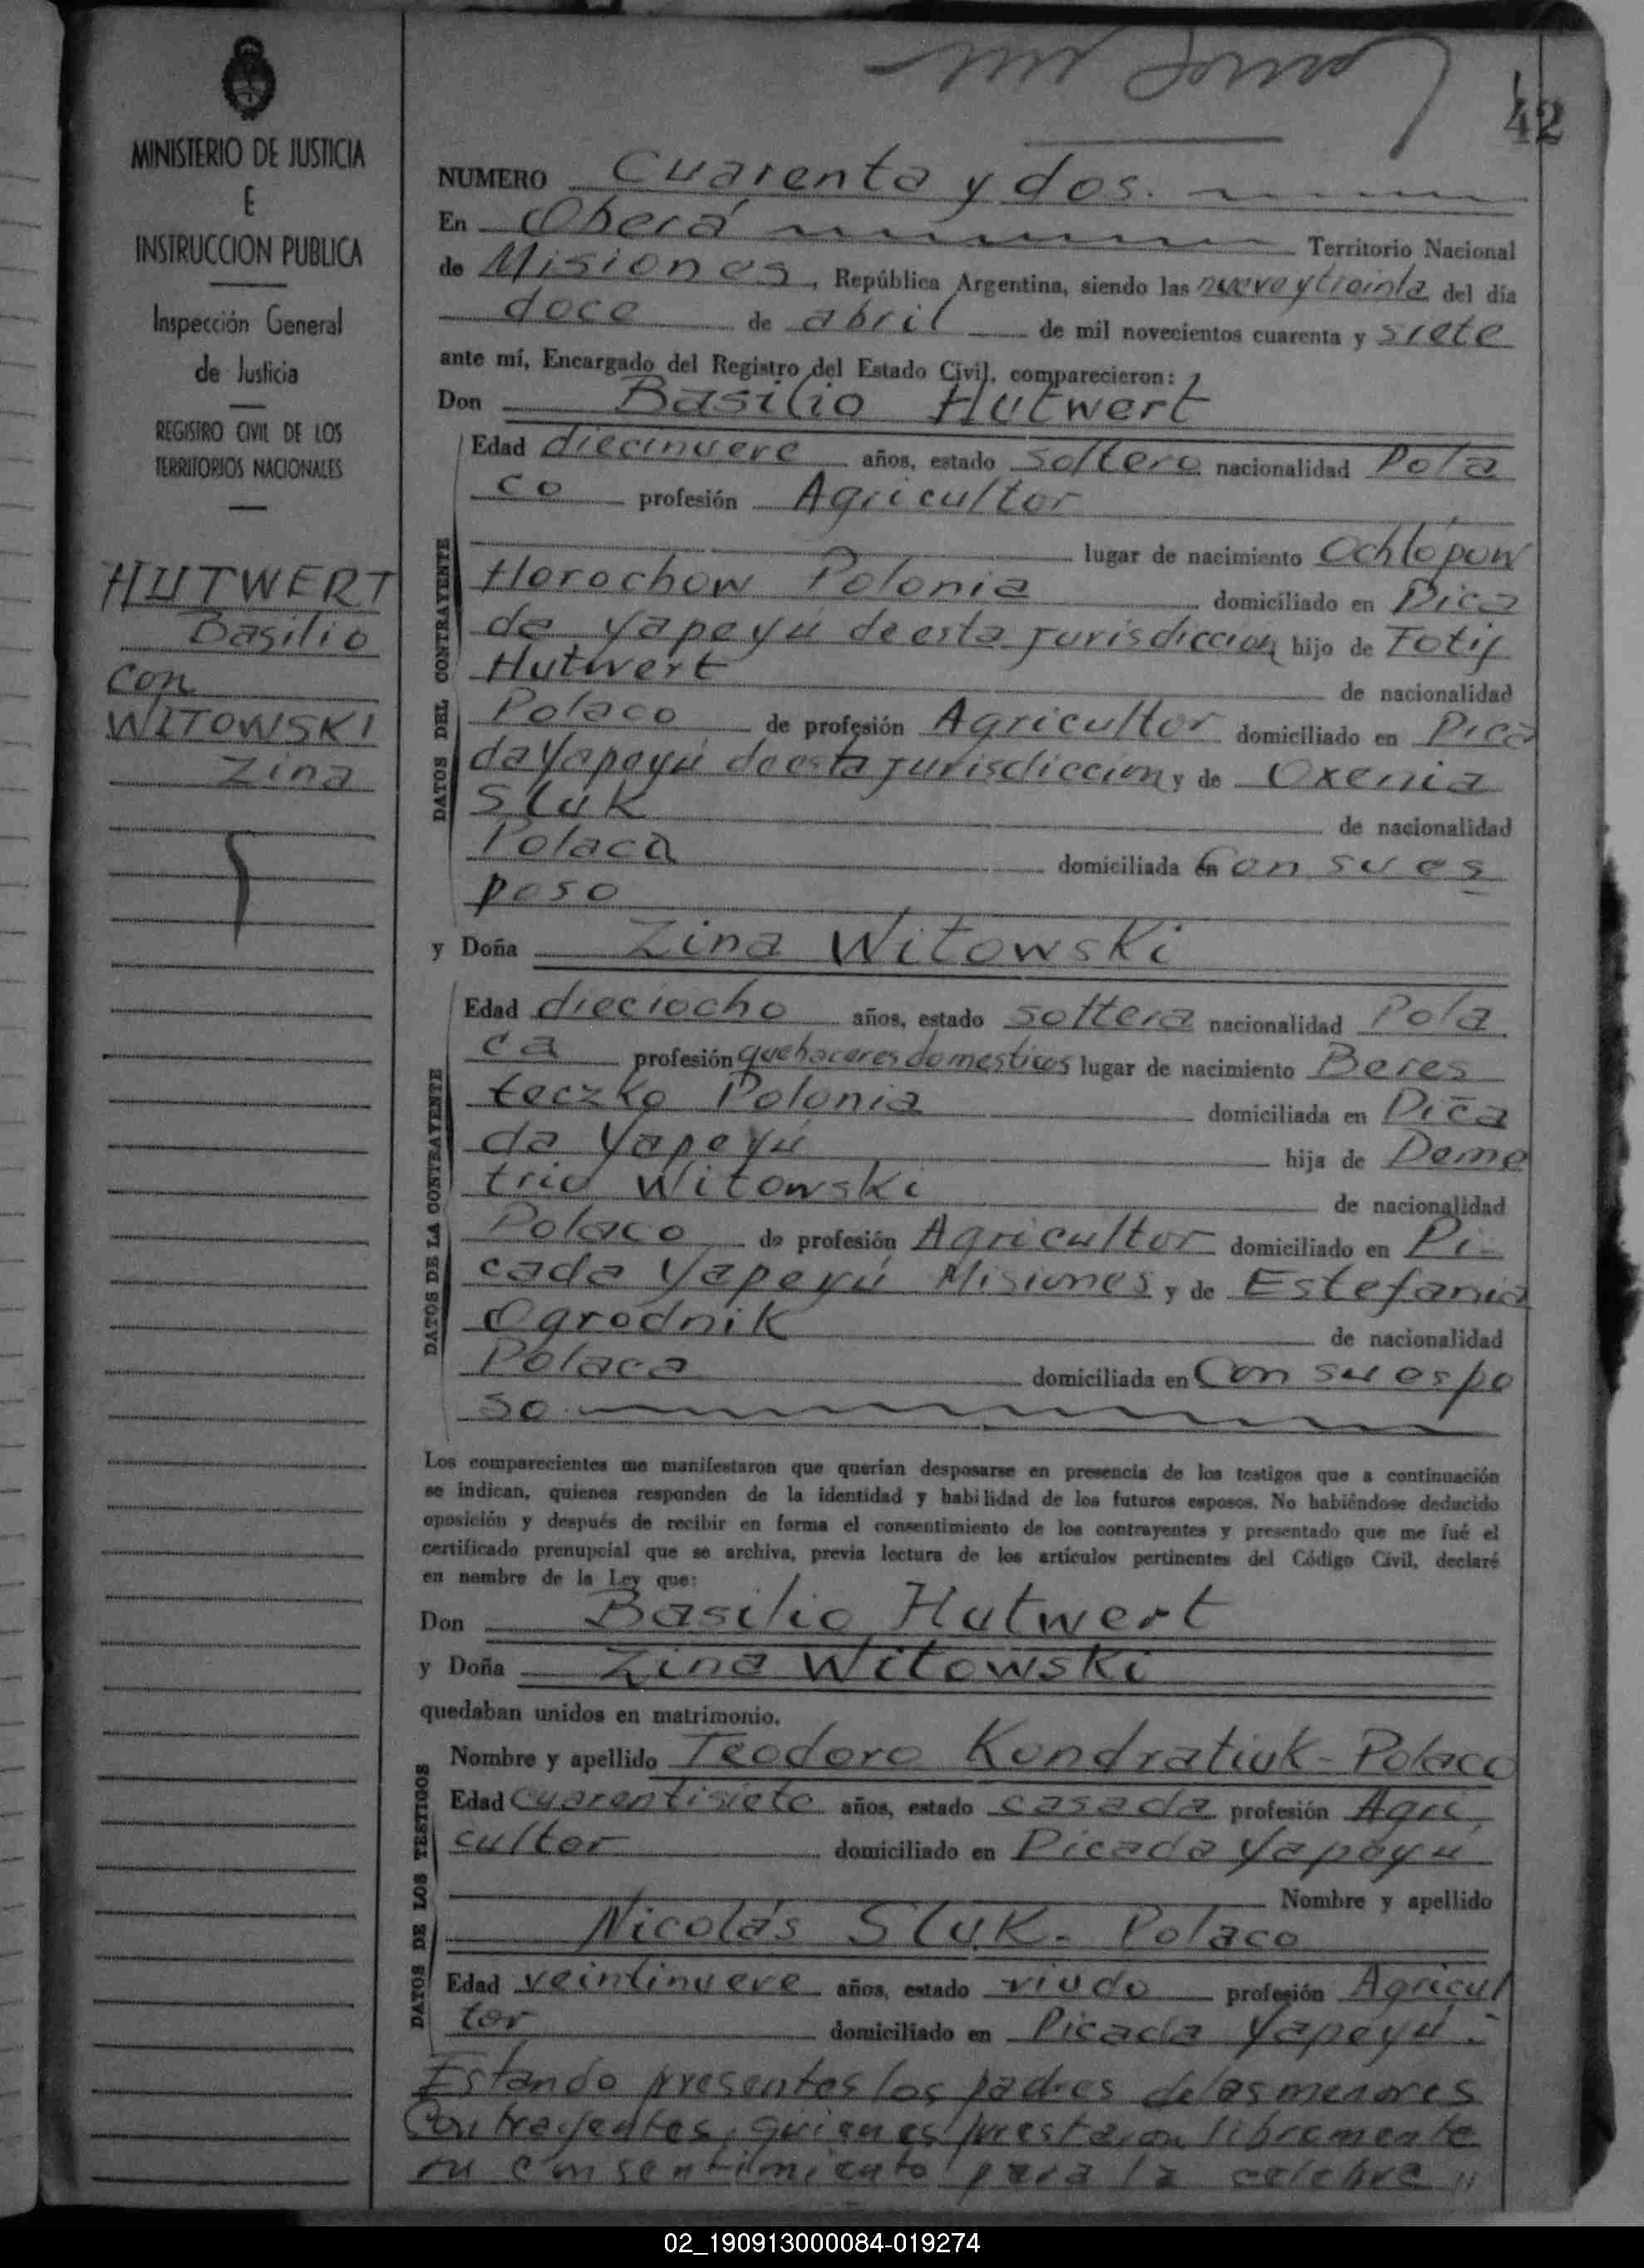 42
MINISTERIO DE JUSTICIA
E
INSTRUCCION PUBLICA
Inspección General
de Justicia
REGISTRO CIVIL DE LOS
TERRITORIOS NACIONALES
HUTWERT
Basilio
con
WITOWSKI
Zina
NUMERO Cuarenta y dos.
En Oberá Territorio Nacional
de Misiones, República Argentina, siendo las nueve y treinta del día
doce de abril de mil novecientos cuarenta y siete
ante mí, Encargado del Registro del Estado Civil, comparecieron:
Don Basilio Hutwert
DATOS DEL CONTRAYENTE
Edad diecinueve años, estado soltero nacionalidad Pola
co profesión Agricultor
lugar de nacimiento Ochlopow
Horochow Polonia domiciliado en Pica
da Yapeyú de esta jurisdiccion hijo de Fotij
Hutwert de nacionalidad
Polaco de profesión Agricultor domiciliado en Pica
da Yapeyú de esta jurisdiccion y de Oxenia
Sluk de nacionalidad
Polaca domiciliada en Con su es
poso
y Doña Zina Witowski
DATOS DE LA CONTRAYENTE
Edad dieciocho años, estado soltera nacionalidad Pola
ca profesión quehaceres domesticos lugar de nacimiento Beres
teczko Polonia domiciliada en Pica
da Yapeyú hija de Deme
trio Witowski de nacionalidad
Polaco de profesión Agricultor domiciliado en Pi-
cada Yapeyú Misiones y de Estefania
Ogrodnik de nacionalidad
Polaca domiciliada en Con su espo
so.
Los comparecientes me manifestaron que querían desposarse en presencia de los testigos que a continuación
se indican, quienes responden de la identidad y habilidad de los futuros esposos. No habiéndose deducido
oposición y después de recibir en forma el consentimiento de los contrayentes y presentado que me fué el
certificado prenupcial que se archiva, previa lectura de los artículos pertinentes del Código Civil, declaré
en nombre de la Ley que:
Don Basilio Hutwert
y Doña Zina Witowski
quedaban unidos en matrimonio.
DATOS DE LOS TESTIGOS
Nombre y apellido Teodoro Kondratiuk - Polaco
Edad cuarentisiete años, estado casada profesión Agri
cultor domiciliado en Picada Yapeyú
Nombre y apellido
Nicolás Sluk - Polaco
Edad veintinueve años, estado viudo profesión Agricul
tor domiciliado en Picada Yapeyú.-
Estando presentes los padres de los menores
Contrayentes, quienes prestaron libremente
su consentimiento para la celebre
02_190913000084-019274